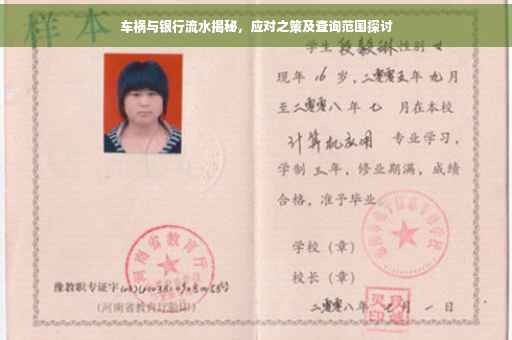 车祸与银行流水揭秘，应对之策及查询范围探讨
样本
学生 段毅琳 性别 女
现年 16 岁，二零零五年 九 月
至二零零八年 七 月在本校
计算机应用 专业学习，
学制 三 年，修业期满，成绩
合格，准予毕业
学校（章）
校长（章）
二零零八年 七 月 一 日
河南省教育厅
豫教职专证字
（河南省教育厅验印）